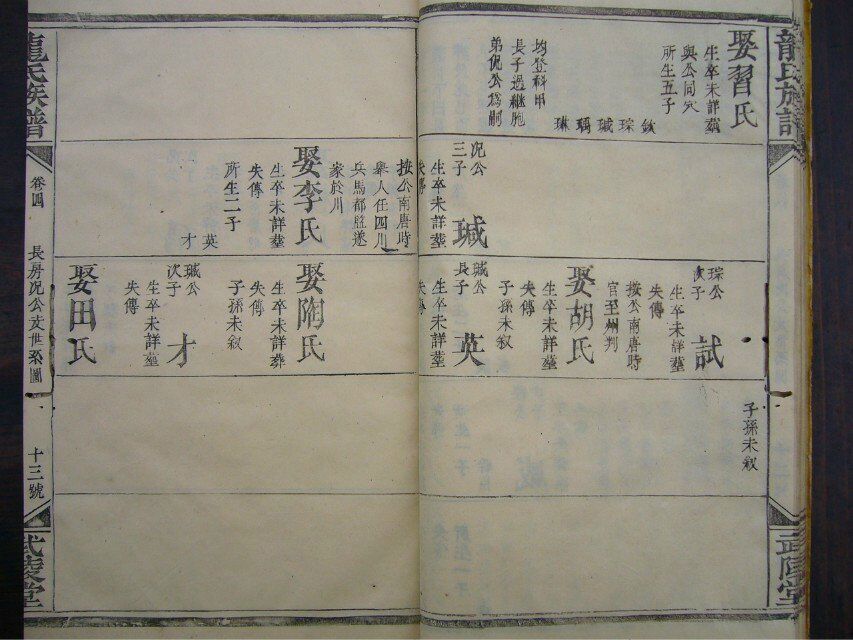 龍氏族譜
武陵堂
娶習氏
生卒未詳塟
與公同穴
所生五子
欽
琮
瑊
瑀
琳
均登科甲
長子過繼胞
弟倪公為嗣
况公
三子
瑊
生卒未詳塟
失傳
按公南唐時
舉人任四川
兵馬都監遂
家於川
娶李氏
生卒未詳塟
失傳
所生二子
英
才
琮公
次子
試
生卒未詳塟
失傳
按公南唐時
官至州判
娶胡氏
生卒未詳塟
失傳
子孫未叙
瑊公
長子
英
生卒未詳塟
失傳
娶陶氏
生卒未詳葬
失傳
子孫未叙
瑊公
次子
才
生卒未詳塟
失傳
娶田氏
子孫未叙
龍氏族譜
卷四
長房况公支世系圖
十三號
武陵堂